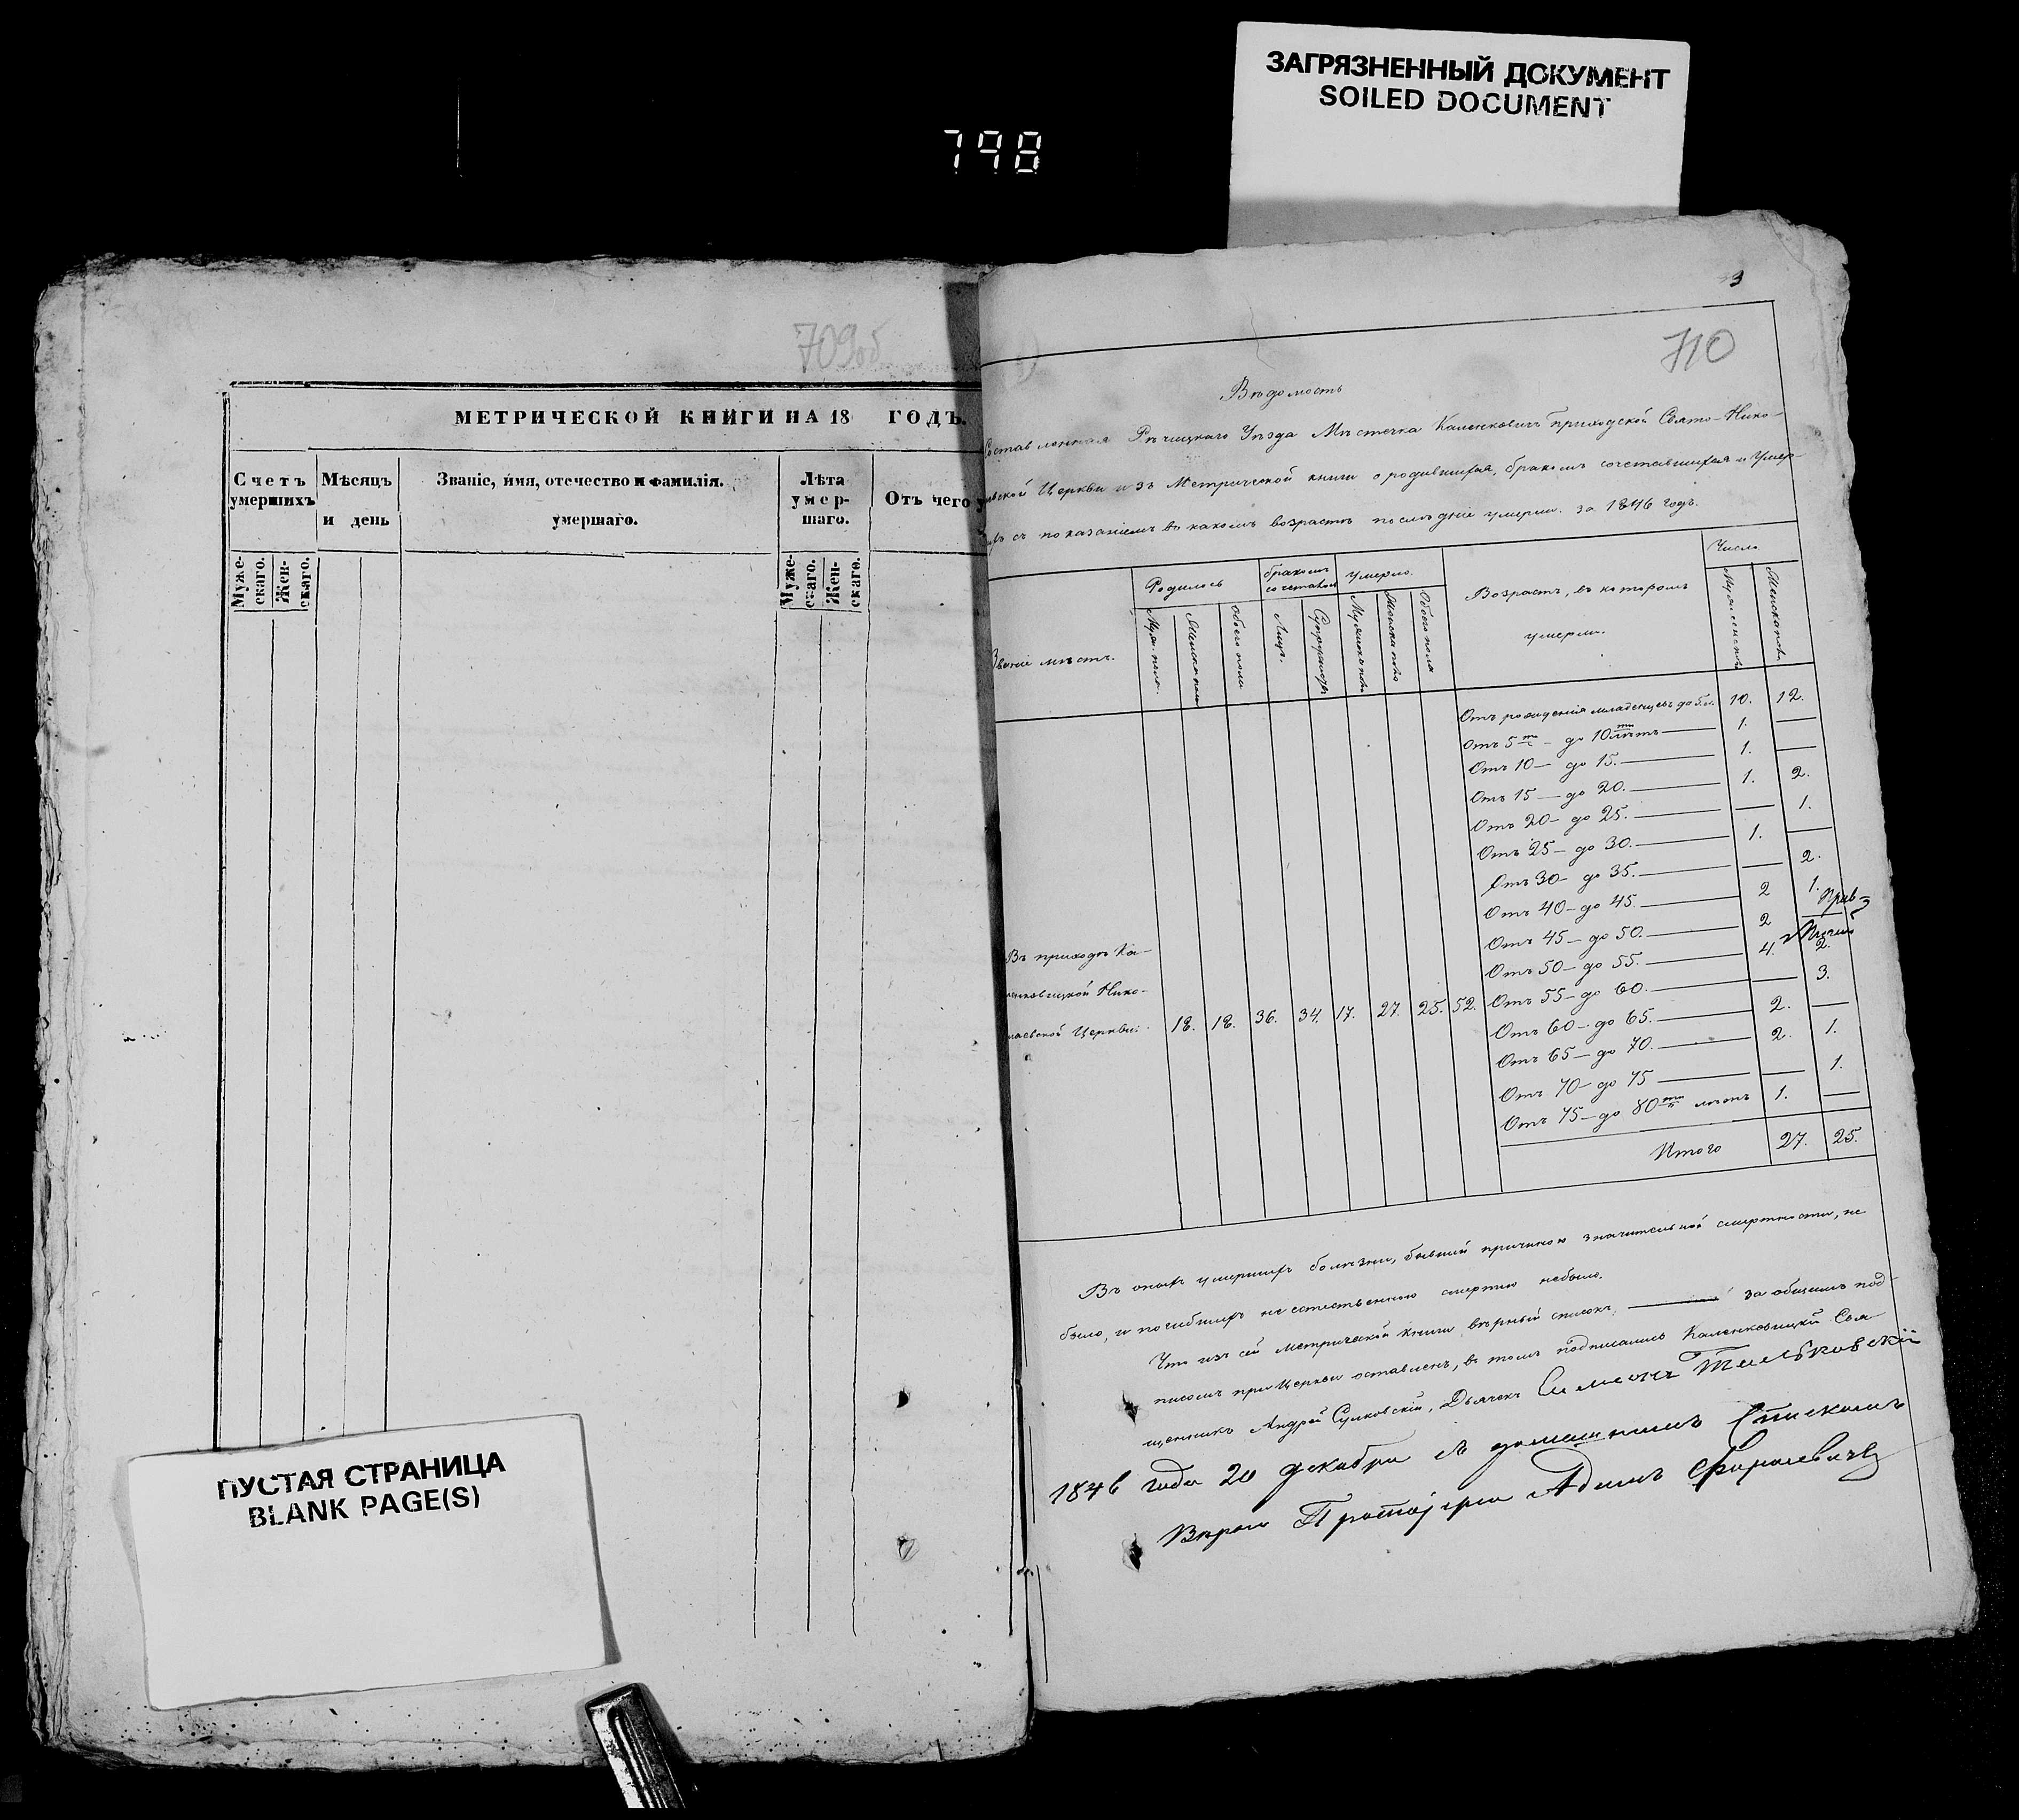 ЗАГРЯЗНЕННЫЙ ДОКУМЕНТ
SOILED DOCUMENT
798
709об
МЕТРИЧЕСКОЙ КНИГИ НА 18 ГОДЪ.
Счетъ умершихъ
Мѣсяцъ и день
Званіе, имя, отечество и фамилія. умершаго.
Лѣта умер-шаго.
Отъ чего
Муже-скаго.
Жен-скаго.
Муже-скаго.
Жен-скаго.
ПУСТАЯ СТРАНИЦА
BLANK PAGE(S)
3
710
Вѣдомость
Составленная Рѣчицкаго Уѣзда Мѣстечка Каленковичъ приходской Свято-Нико-
Церкви изъ Метрической книги о родившихся, бракомъ сочетавшихся и Умер-
съ показаніемъ въ какомъ возрастѣ послѣдніе умерли. за 1846 годъ.
Званіе мѣстъ.
Родилось
бракомъ
умерло.
Возрастъ, въ которомъ
умерли.
Число
Обоего пола
Лицъ.
Обоего пола
Отъ рожденія младенцевъ до 5. 10. 12.
Отъ 5 — до 10 лѣтъ — 1. —
Отъ 10 — до 15. — 1. —
Отъ 15 — до 20. — 1. 2.
Отъ 20 — до 25. — — 1.
Отъ 25 — до 30. — 1. —
Отъ 30 — до 35. — — 2.
Отъ 40 — до 45. — 2 1.
Отъ 45 — до 50. — 2 —
Отъ 50 — до 55. — 4. 2.
Отъ 55 — до 60. — — 3.
Отъ 60 — до 65. — 2. —
Отъ 65 — до 70. — 2. 1.
Отъ 70 — до 75 — — 1.
Отъ 75 — до 80 лѣтъ 1. —
Итого 27. 25.
Въ приходѣ Ка-
Нико-
лаевской Церкви: 18. 18. 36. 34. 17. 27. 25. 52.
Въ оныхъ умершихъ болѣзни, бывшей причиною значительной смертности, не
было, и погибшихъ неестественною смертію небыло.
Что изъ сей метрической книги вѣрный списокъ, — за общимъ под-
писомъ при Церкви оставленъ, въ томъ подписались Каленковицкій Свя-
щенникъ Андрей Сулковскій, Дьячекъ Симеонъ
1846 года 20 декабря съ домашнимъ Спискомъ
Вѣрно Протоіерей Адамъ